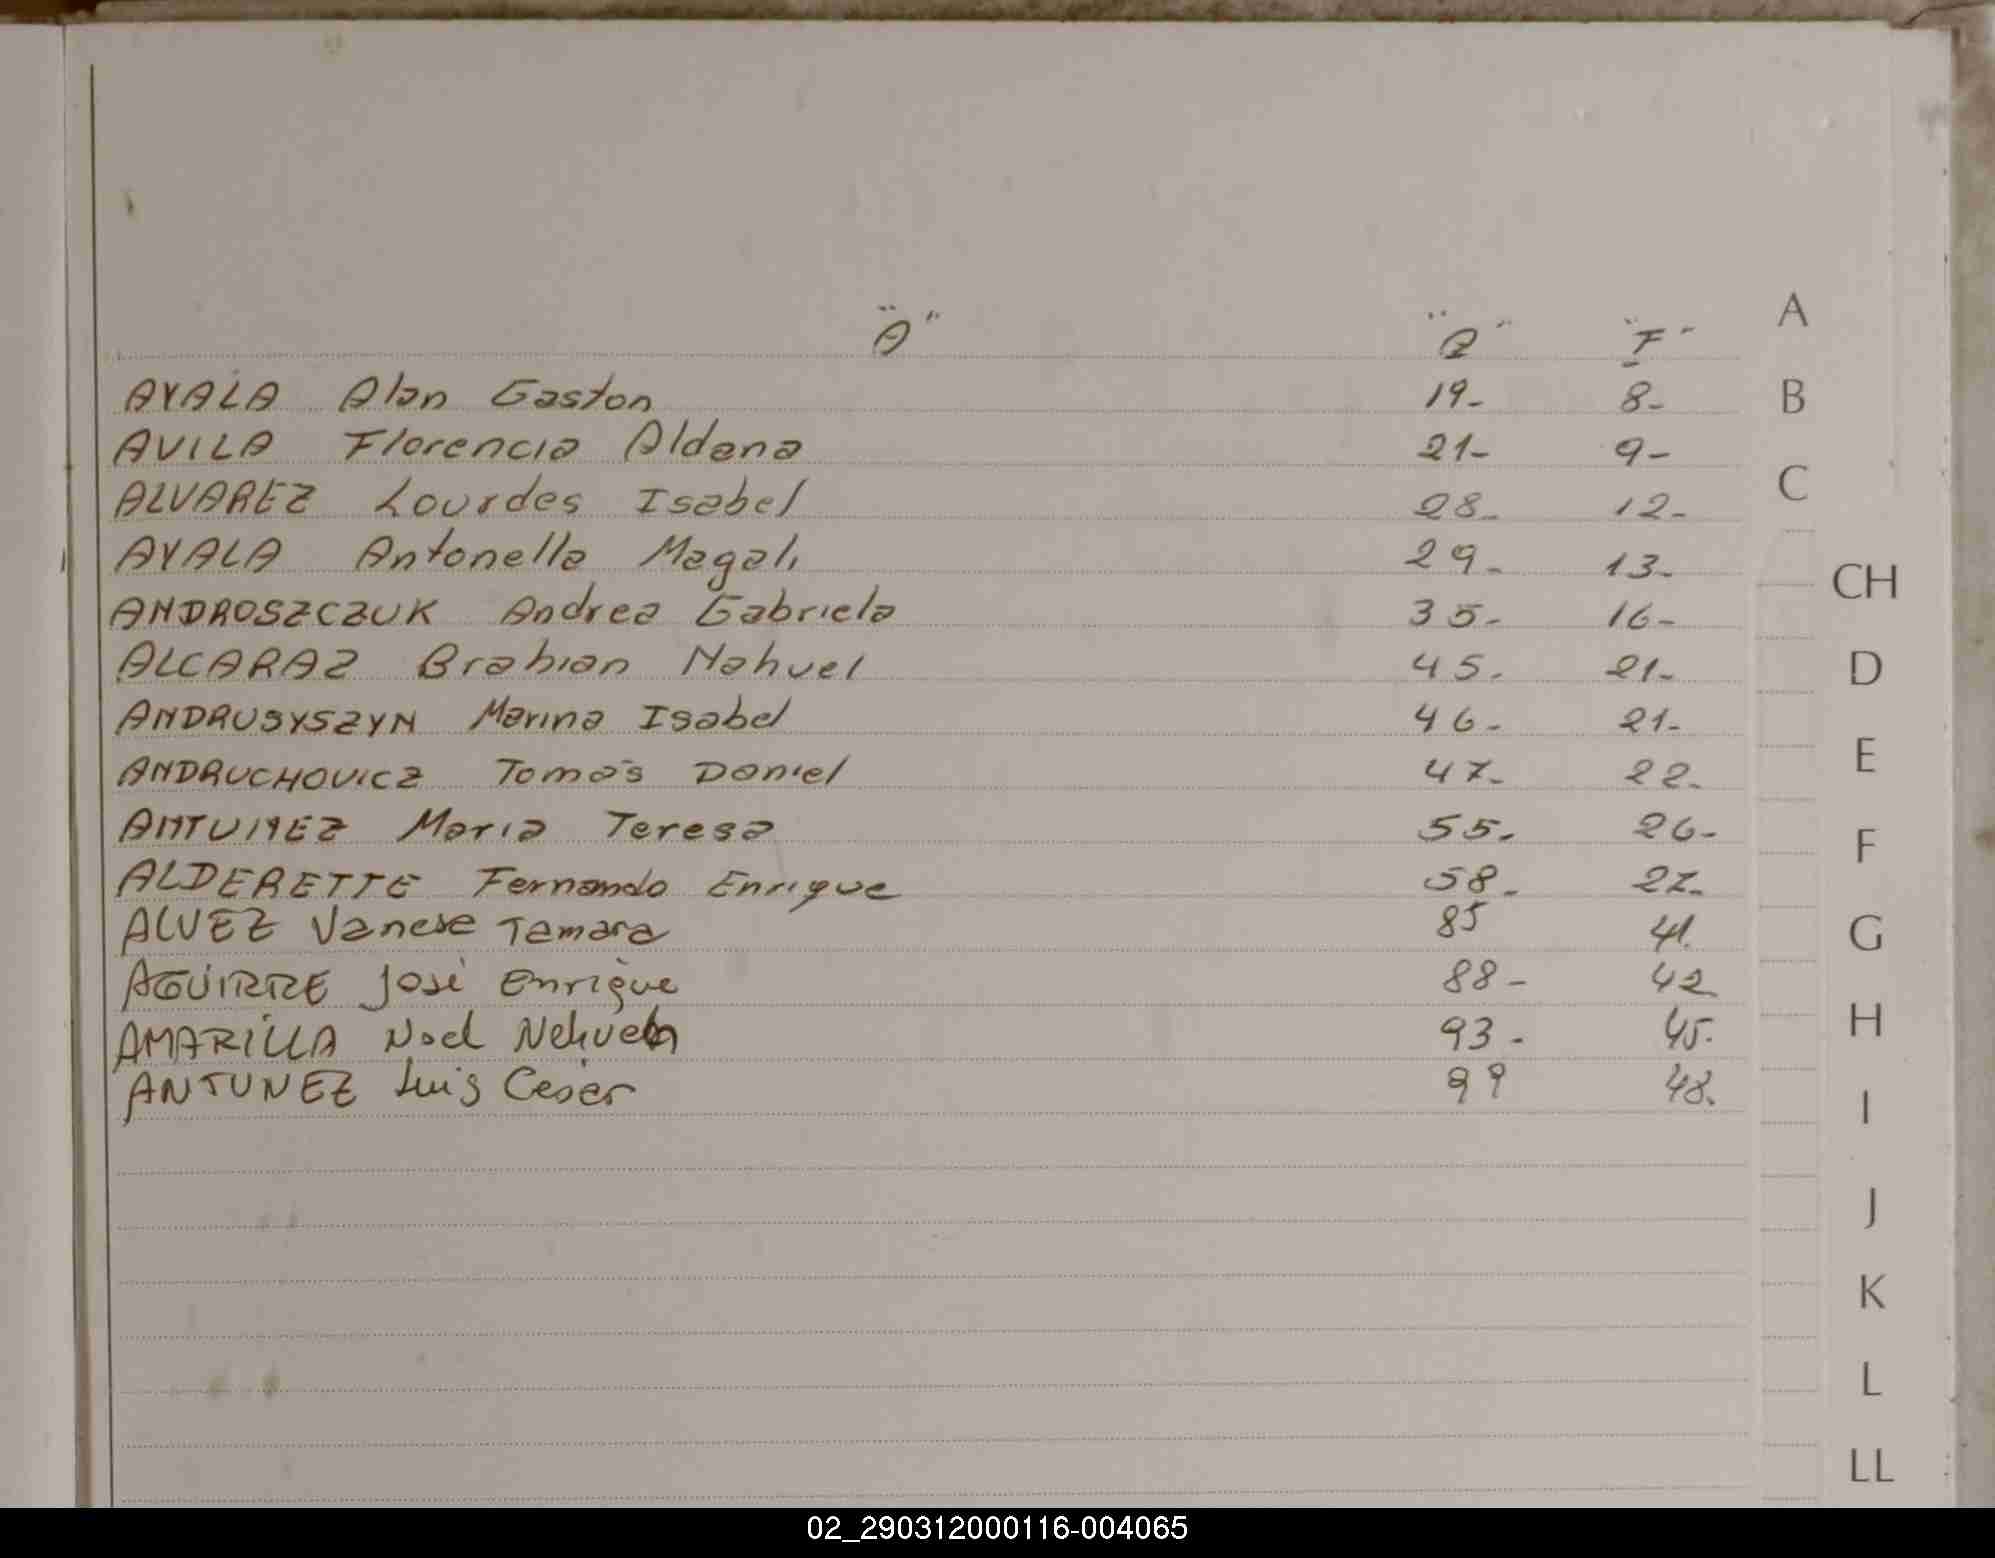 "A" "A" "F"
AYALA Alan Gaston 19- 8-
AVILA Florencia Aldana 21- 9-
ALVAREZ Lourdes Isabel 28- 12-
AYALA Antonella Magali 29- 13-
ANDROSZCZUK Andrea Gabriela 35- 16-
ALCARAZ Brahian Nahuel 45- 21-
ANDRUSYSZYN Marina Isabel 46- 21-
ANDRUCHOVICZ Tomás Daniel 47- 22-
ANTUNEZ Maria Teresa 55- 26-
ALDERETTE Fernando Enrique 58- 27-
ALVEZ Vanesa Tamara 85 41.
AGUIRRE José Enrique 88- 42
AMARILLA Noel 93- 45.
ANTUNEZ Luis Cesar 99 48.
A
B
C
CH
D
E
F
G
H
I
J
K
L
LL
02_290312000116-004065